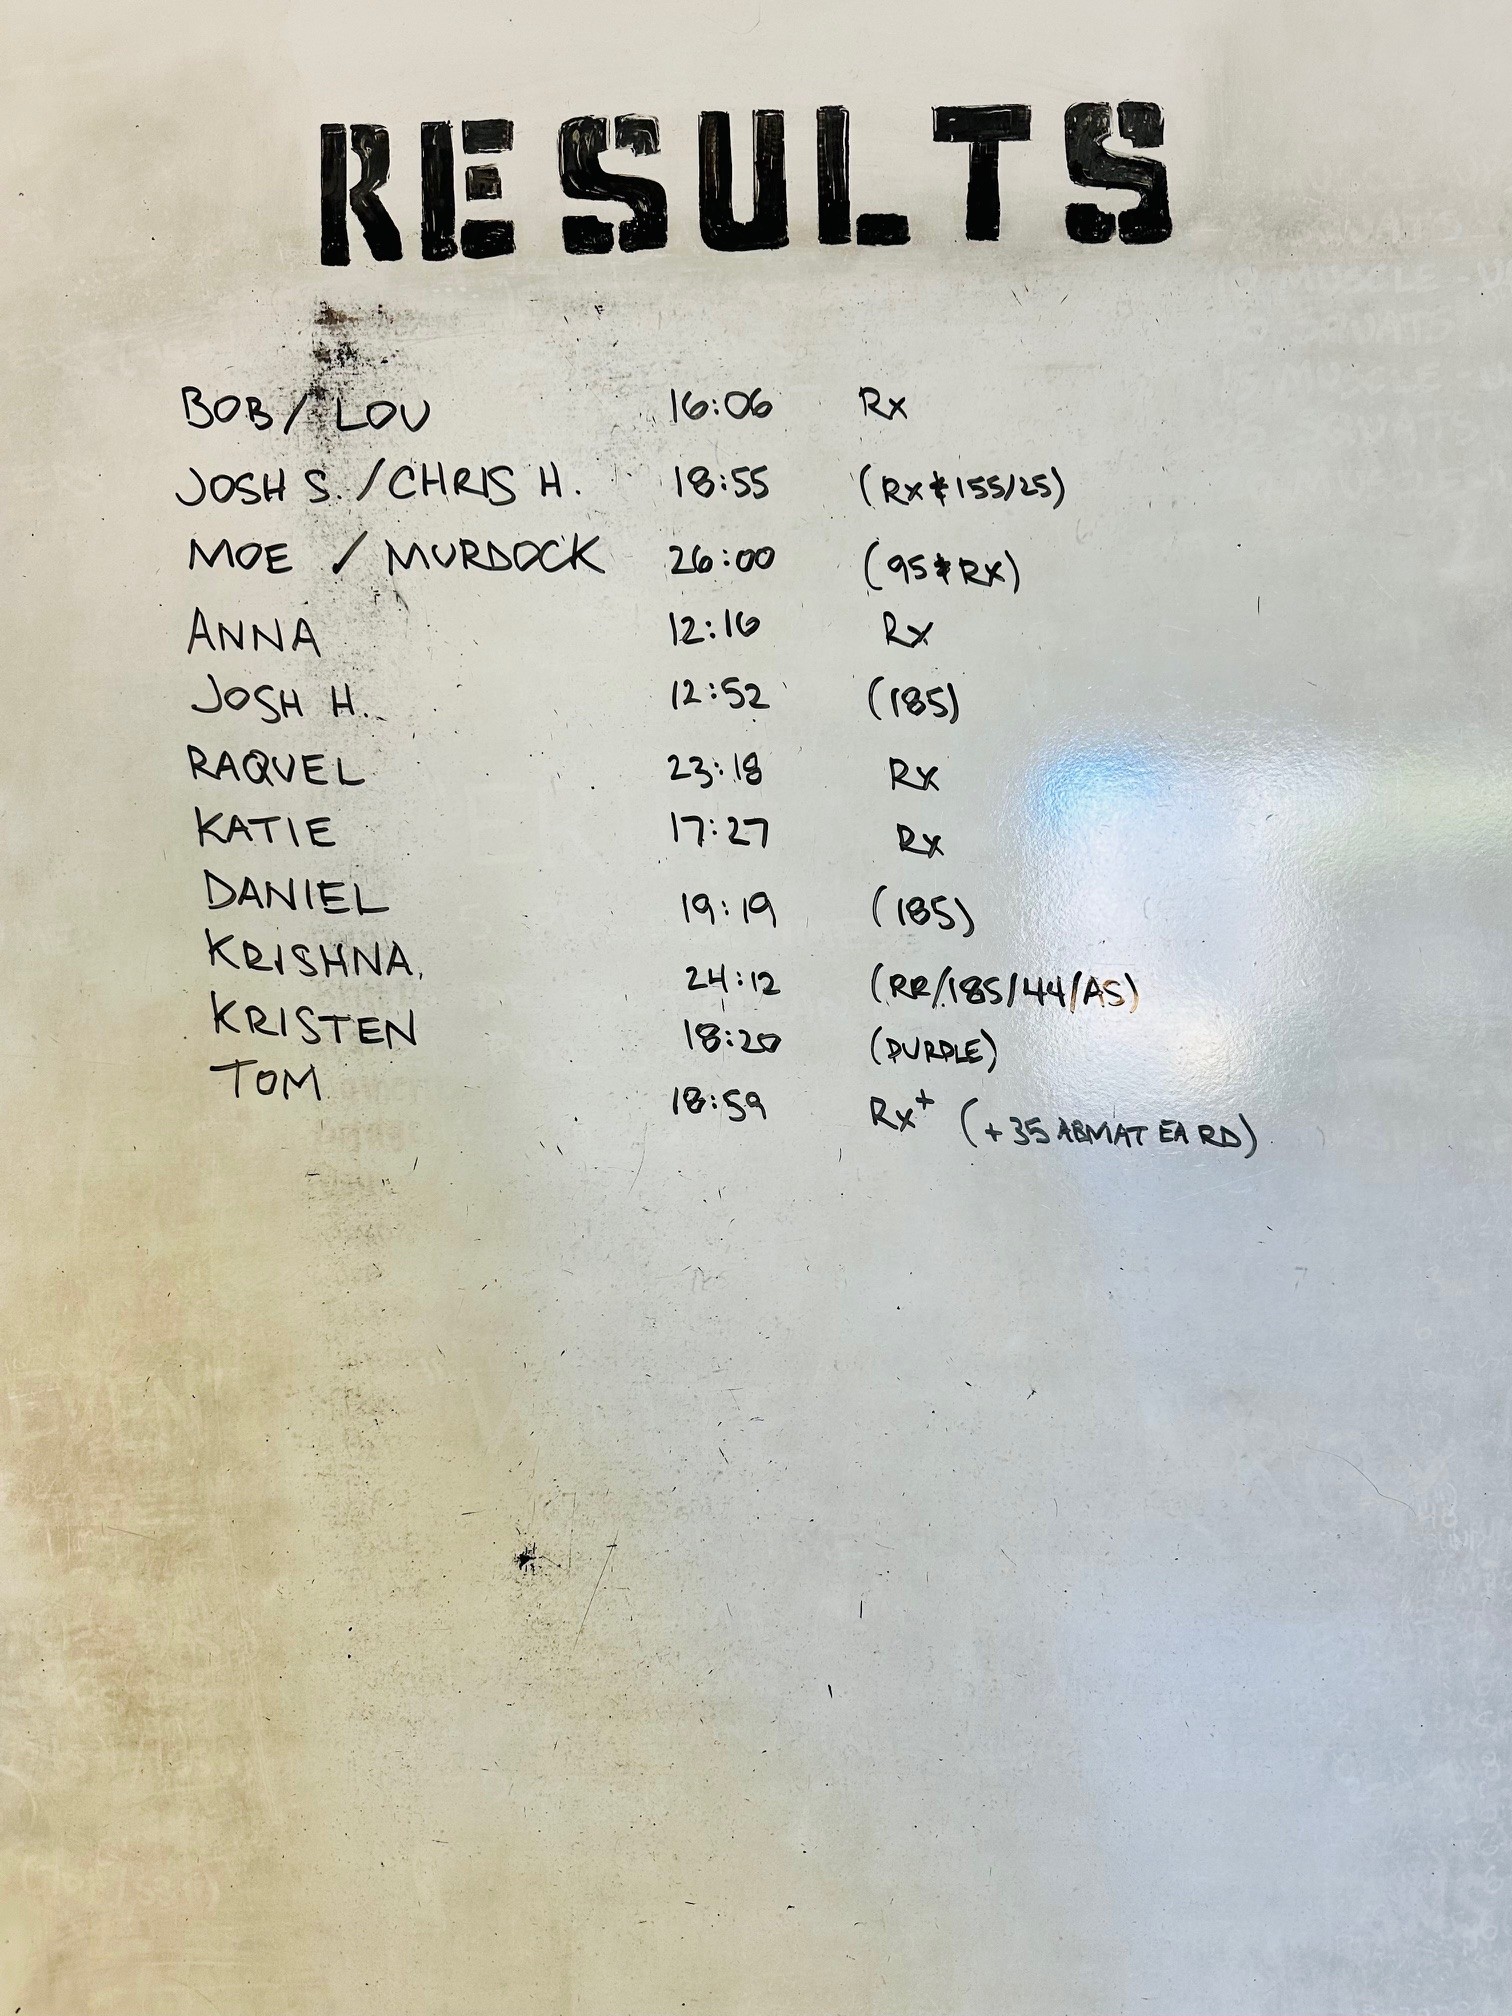 RESULTS
BOB/LOU 16:06 Rx
JOSH S./CHRIS H. 18:55 (Rx & 155/25)
MOE / MURDOCK 26:00 (95 & RX)
ANNA 12:16 Rx
JOSH H. 12:52 (185)
RAQUEL 23:18 Rx
KATIE 17:27 Rx
DANIEL 19:19 (185)
KRISHNA. 24:12 (RR/185/44/AS)
KRISTEN 18:20 (PURPLE)
TOM 18:59 Rx+ (+35 ABMAT EA RD)